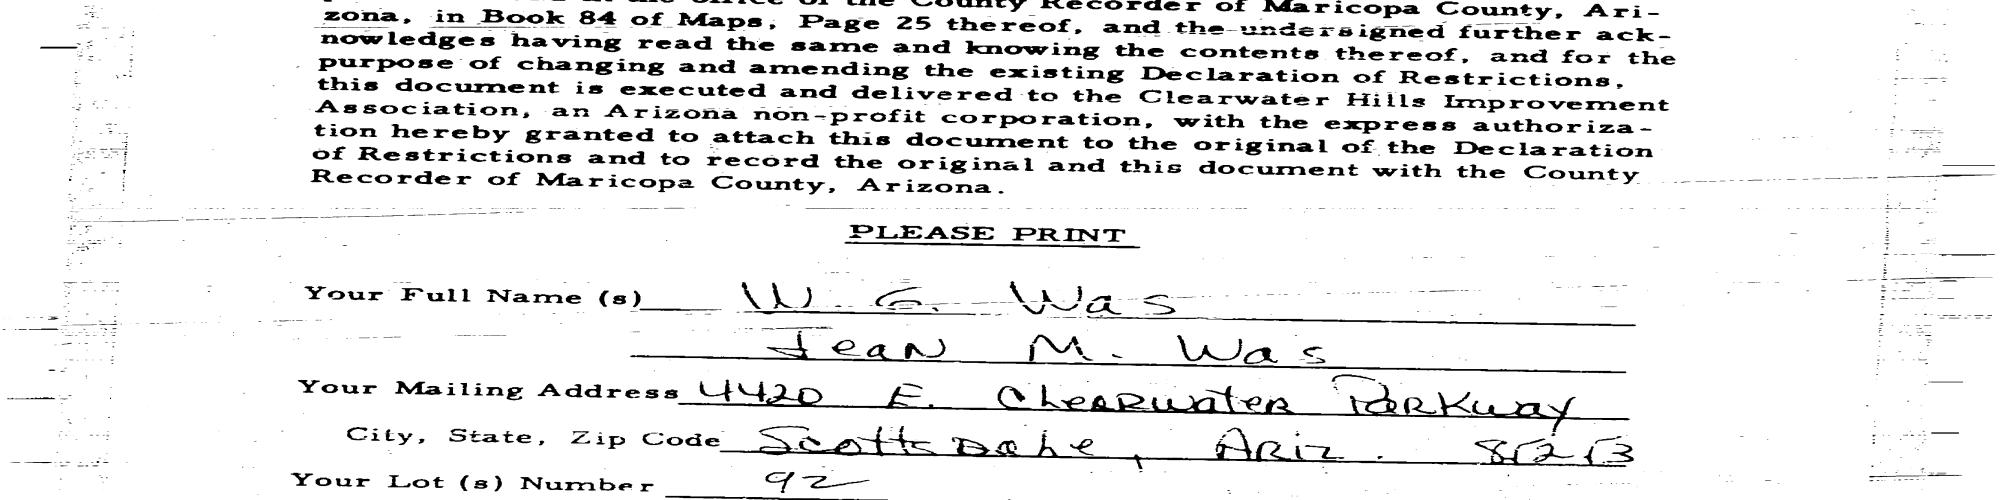 the office of the County Recorder of Maricopa County, Ari-
zona, in Book 84 of Maps, Page 25 thereof, and the undersigned further ack-
nowledges having read the same and knowing the contents thereof, and for the
purpose of changing and amending the existing Declaration of Restrictions,
this document is executed and delivered to the Clearwater Hills Improvement
Association, an Arizona non-profit corporation, with the express authoriza-
tion hereby granted to attach this document to the original of the Declaration
of Restrictions and to record the original and this document with the County
Recorder of Maricopa County, Arizona.
PLEASE PRINT
Your Full Name (s) W. G. Was
Jean M. Was
Your Mailing Address 4420 E. Clearwater Parkway
City, State, Zip Code Scottsdale, Ariz. 85253
Your Lot (s) Number 92